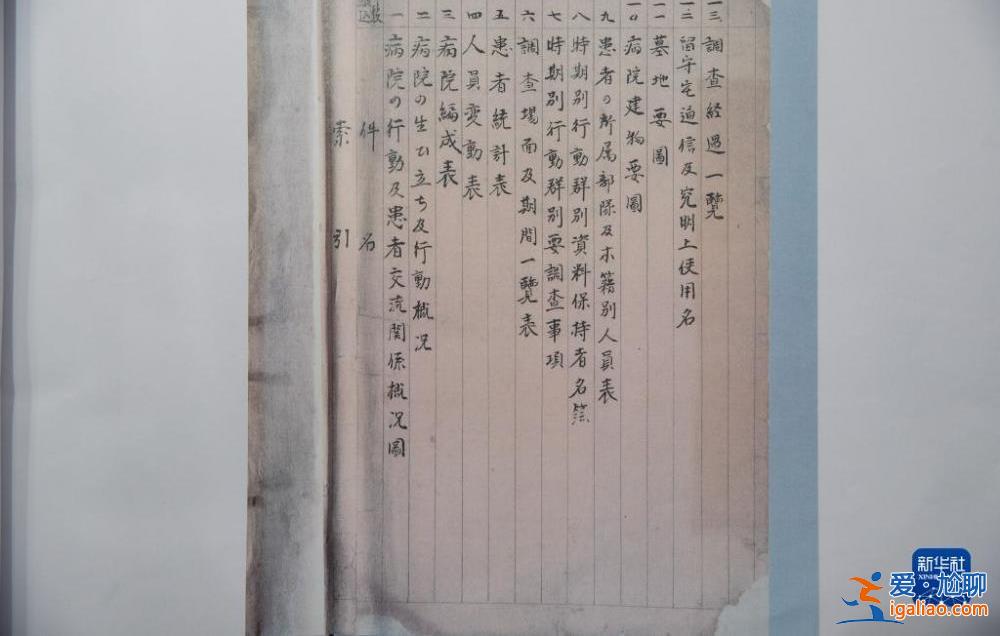 索引
件名
一 病院の行動及患者交流関係概況圖
二 病院の生ひ立ち及行動概況
三 病院編成表
四 人員変動表
五 患者統計表
六 調査場面及期間一覽表
七 時期別行動群別要調査事項
八 時期別行動群別資料保持者名簿
九 患者の所属部隊及本籍別人員表
一〇 病院建物要圖
一一 墓地要圖
一二 留守宅通信及究明上使用名
一三 調査経過一覽
新华社
爱·尬聊
igaliao.com